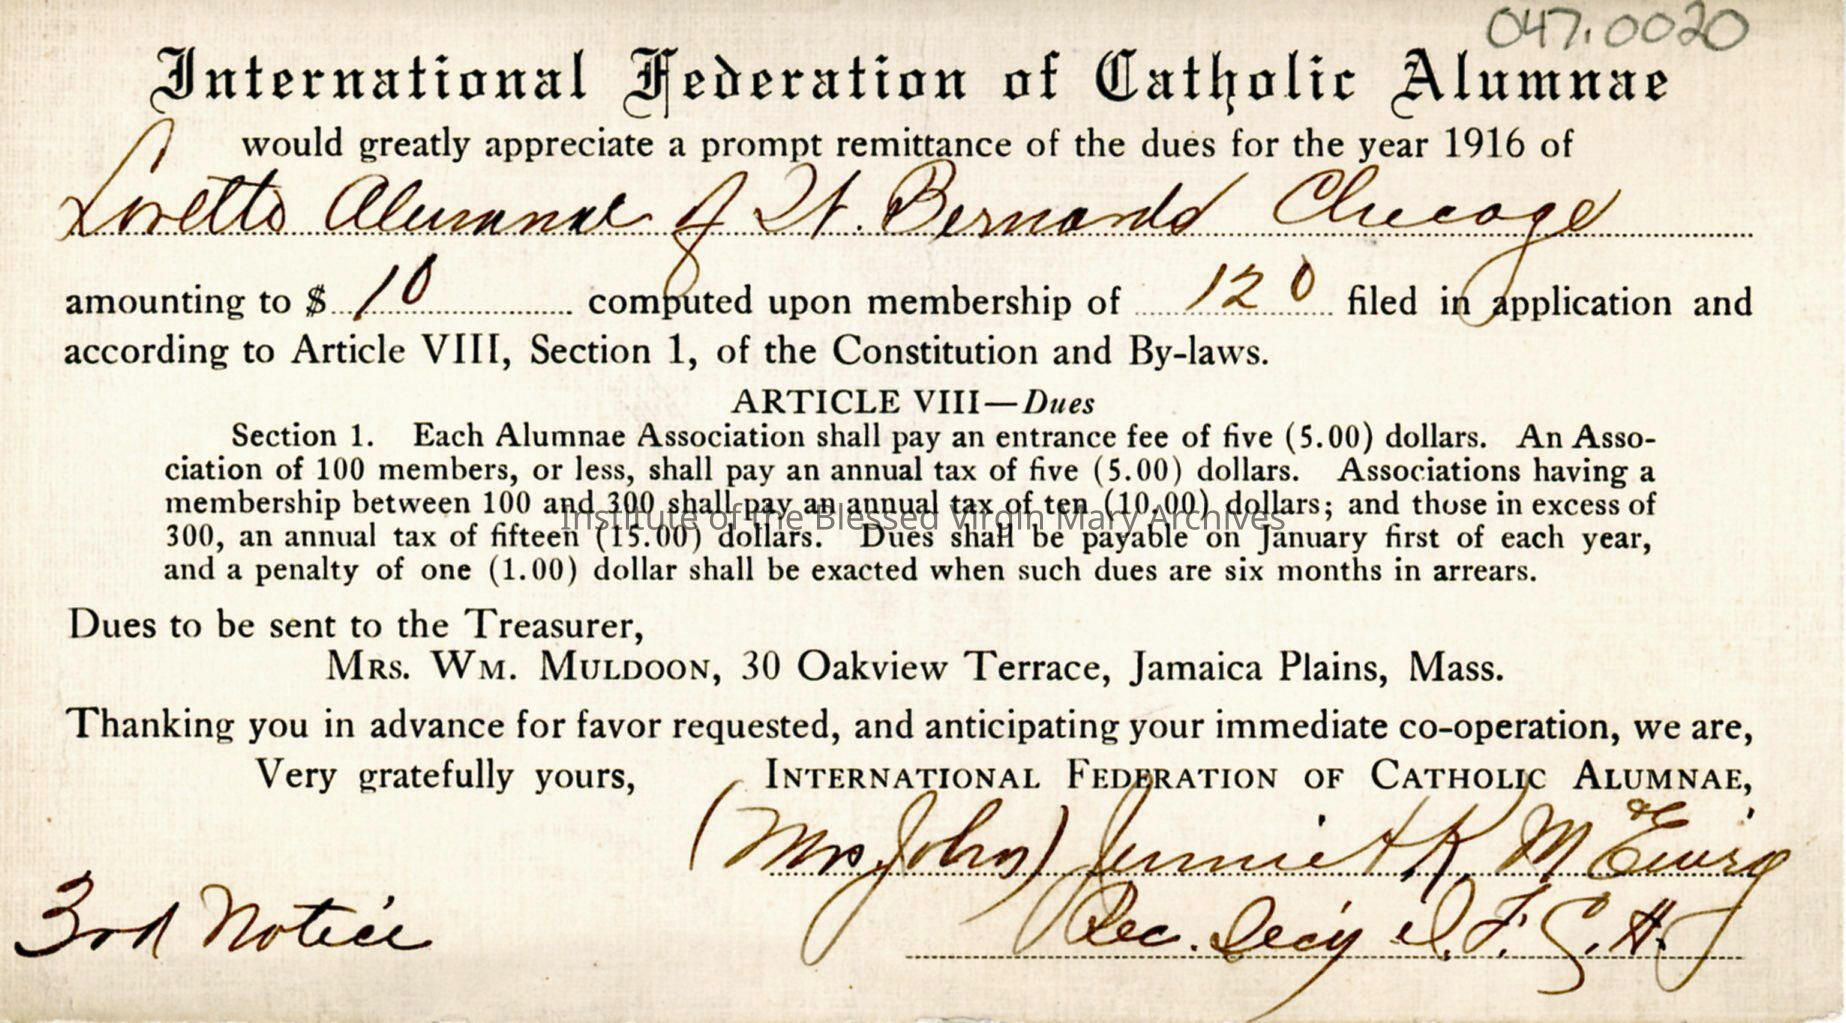 047.0020
International Federation of Catholic Alumnae
would greatly appreciate a prompt remittance of the dues for the year 1916 of
Loretto Alumnae of St. Bernards Chicago
amounting to $ 10 computed upon membership of 120 filed in application and
according to Article VIII, Section 1, of the Constitution and By-laws.
ARTICLE VIII—Dues
Section 1. Each Alumnae Association shall pay an entrance fee of five (5.00) dollars. An Asso-
ciation of 100 members, or less, shall pay an annual tax of five (5.00) dollars. Associations having a
membership between 100 and 300 shall pay an annual tax of ten (10.00) dollars; and those in excess of
Institute of the Blessed Virgin Mary Archives
300, an annual tax of fifteen (15.00) dollars. Dues shall be payable on January first of each year,
and a penalty of one (1.00) dollar shall be exacted when such dues are six months in arrears.
Dues to be sent to the Treasurer,
MRS. WM. MULDOON, 30 Oakview Terrace, Jamaica Plains, Mass.
Thanking you in advance for favor requested, and anticipating your immediate co-operation, we are,
Very gratefully yours, INTERNATIONAL FEDERATION OF CATHOLIC ALUMNAE,
(Mrs John) Jennie K. McEwing
3rd Notice Rec. Sec'y I. F. C. A.